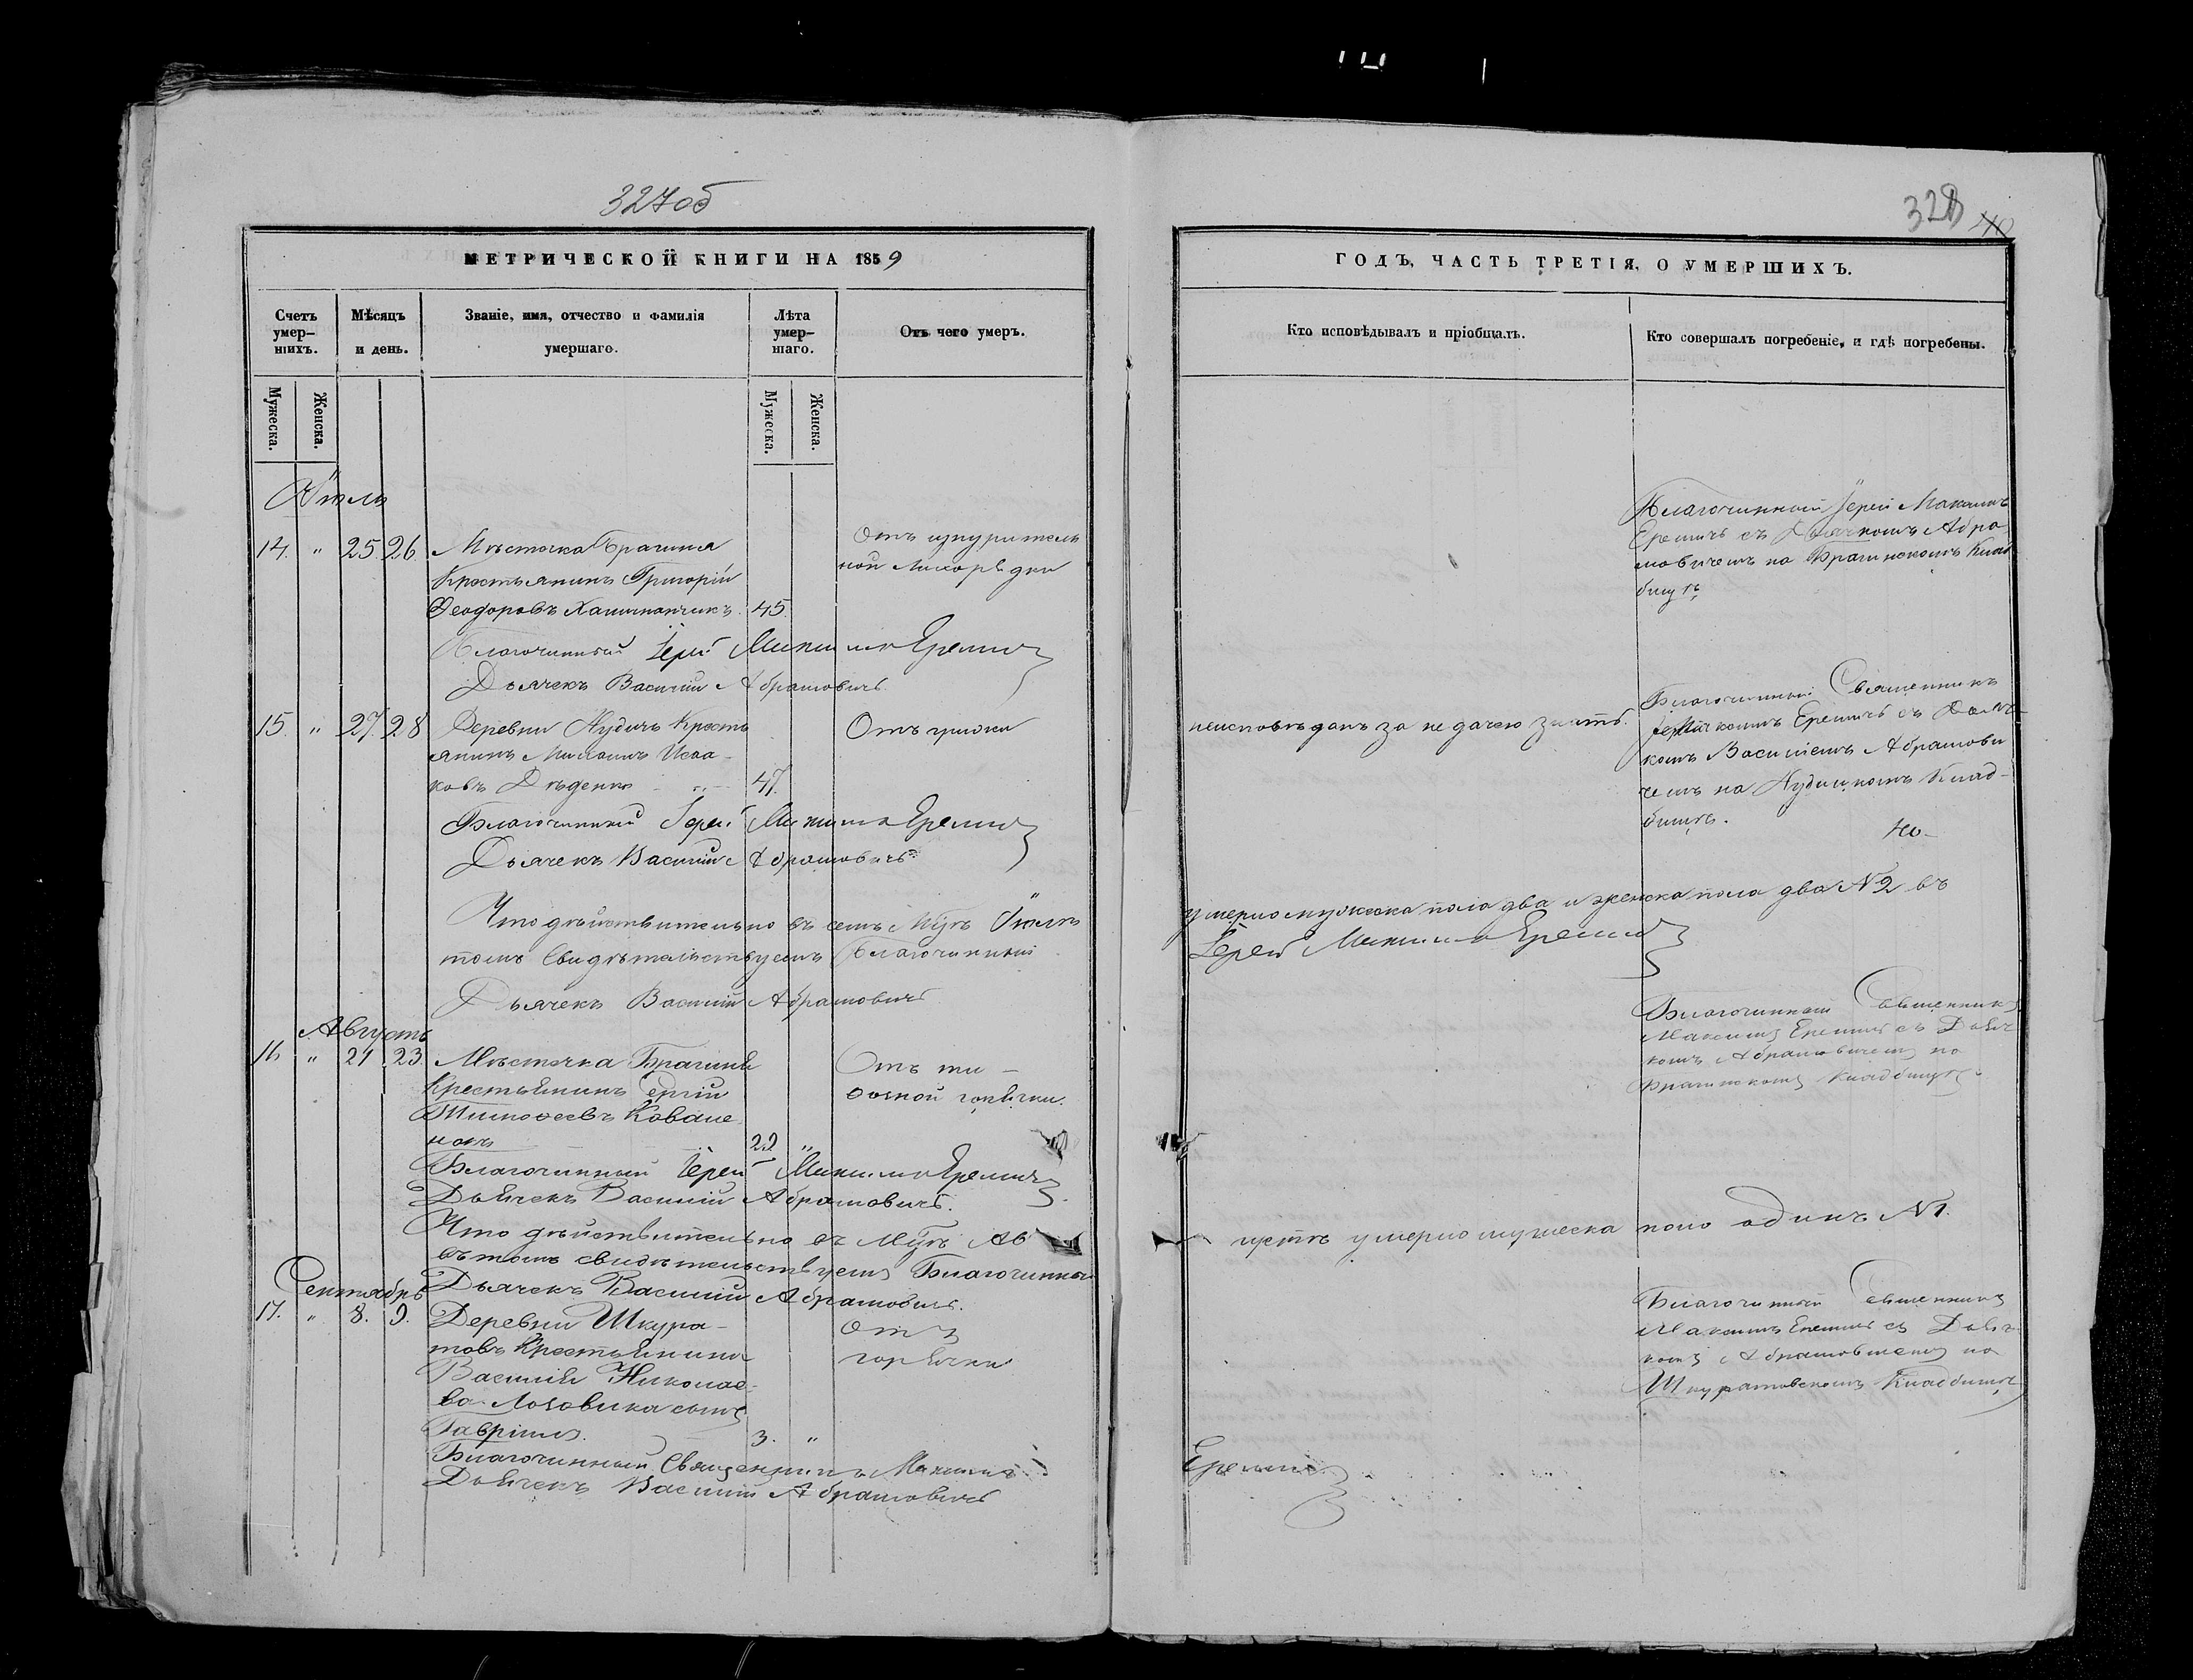 327об
МЕТРИЧЕСКОЙ КНИГИ НА 1859
Счетъ умер–шихъ.
Мѣсяцъ и день.
Званіе, имя, отчество и фамилія умершаго.
Лѣта умер–шаго.
Отъ чего умеръ.
Мужеска.
Женска.
Мужеска.
Женска.
Іюль
14. " 25. 26. Мѣстечка Брагина Отъ изнуритель
Крестьянинъ Григорій ной лихорадки
Ѳеодоровъ 45.
Благочинный Іерей Максимъ Еремичъ
Дьячекъ Василій Абрамовичъ
15. " 27. 28 Деревни Нудичъ Кресть
янинъ Исаа–
ковъ Дѣденко 47.
Благочинный Іерей Максимъ Еремичъ
Дьячекъ Василій Абрамовичъ
Что дѣйствительно въ семъ Іюлѣ
томъ свидѣтельствуемъ Благочинный
Дьячекъ Василій Абрамовичъ
Августъ
16 " 21. 23. Мѣстечка Брагина Отъ ти–
Крестьянинъ Сергій фозной горячки.
Тимоѳеевъ Ковале
нокъ 29 "
Благочинный Іерей Максимъ Еремичъ
Дьячекъ Василій Абрамовичъ.
Что дѣйствительно въ Ав
въ томъ свидѣтельствуемъ Благочинный
Дьячекъ Василій Абрамовичъ.
Сентябрь
17. " 8. 9. Деревни Шкура– Отъ
товъ Крестьянина горячки
Василія Николае–
ва сынъ
Гавріилъ. 3. "
Благочинный Священникъ Максимъ
Дьячекъ Василій Абрамовичъ
328
ГОДЪ, ЧАСТЬ ТРЕТІЯ, О УМЕРШИХЪ.
Кто исповѣдывалъ и пріобщалъ.
Кто совершалъ погребеніе, и гдѣ погребены.
Благочинный Іерей Максимъ
Еремичъ съ Дьячкомъ Абра–
мовичемъ на Брагинскомъ Клад
бищѣ
Благочинный Священникъ
неисповѣданъ за не дачею знать. Еремичъ съ Дьяч–
комъ Василіемъ Абрамови
чемъ на Клад–
бищѣ.
умерло мужеска пола два и женска пола два №2 въ
Іерей Максимъ Еремичъ
Благочинный Священникъ
Максимъ Еремичъ съ Дьяч
комъ Абрамовичемъ на
Брагинскомъ Кладбищѣ
густѣ умерло мужеска пола одинъ №1.
Благочинный Священникъ
Максимъ Еремичъ съ Дьяч
комъ Абрамовичемъ на
Шкуратовскомъ Кладбищѣ
Еремичъ